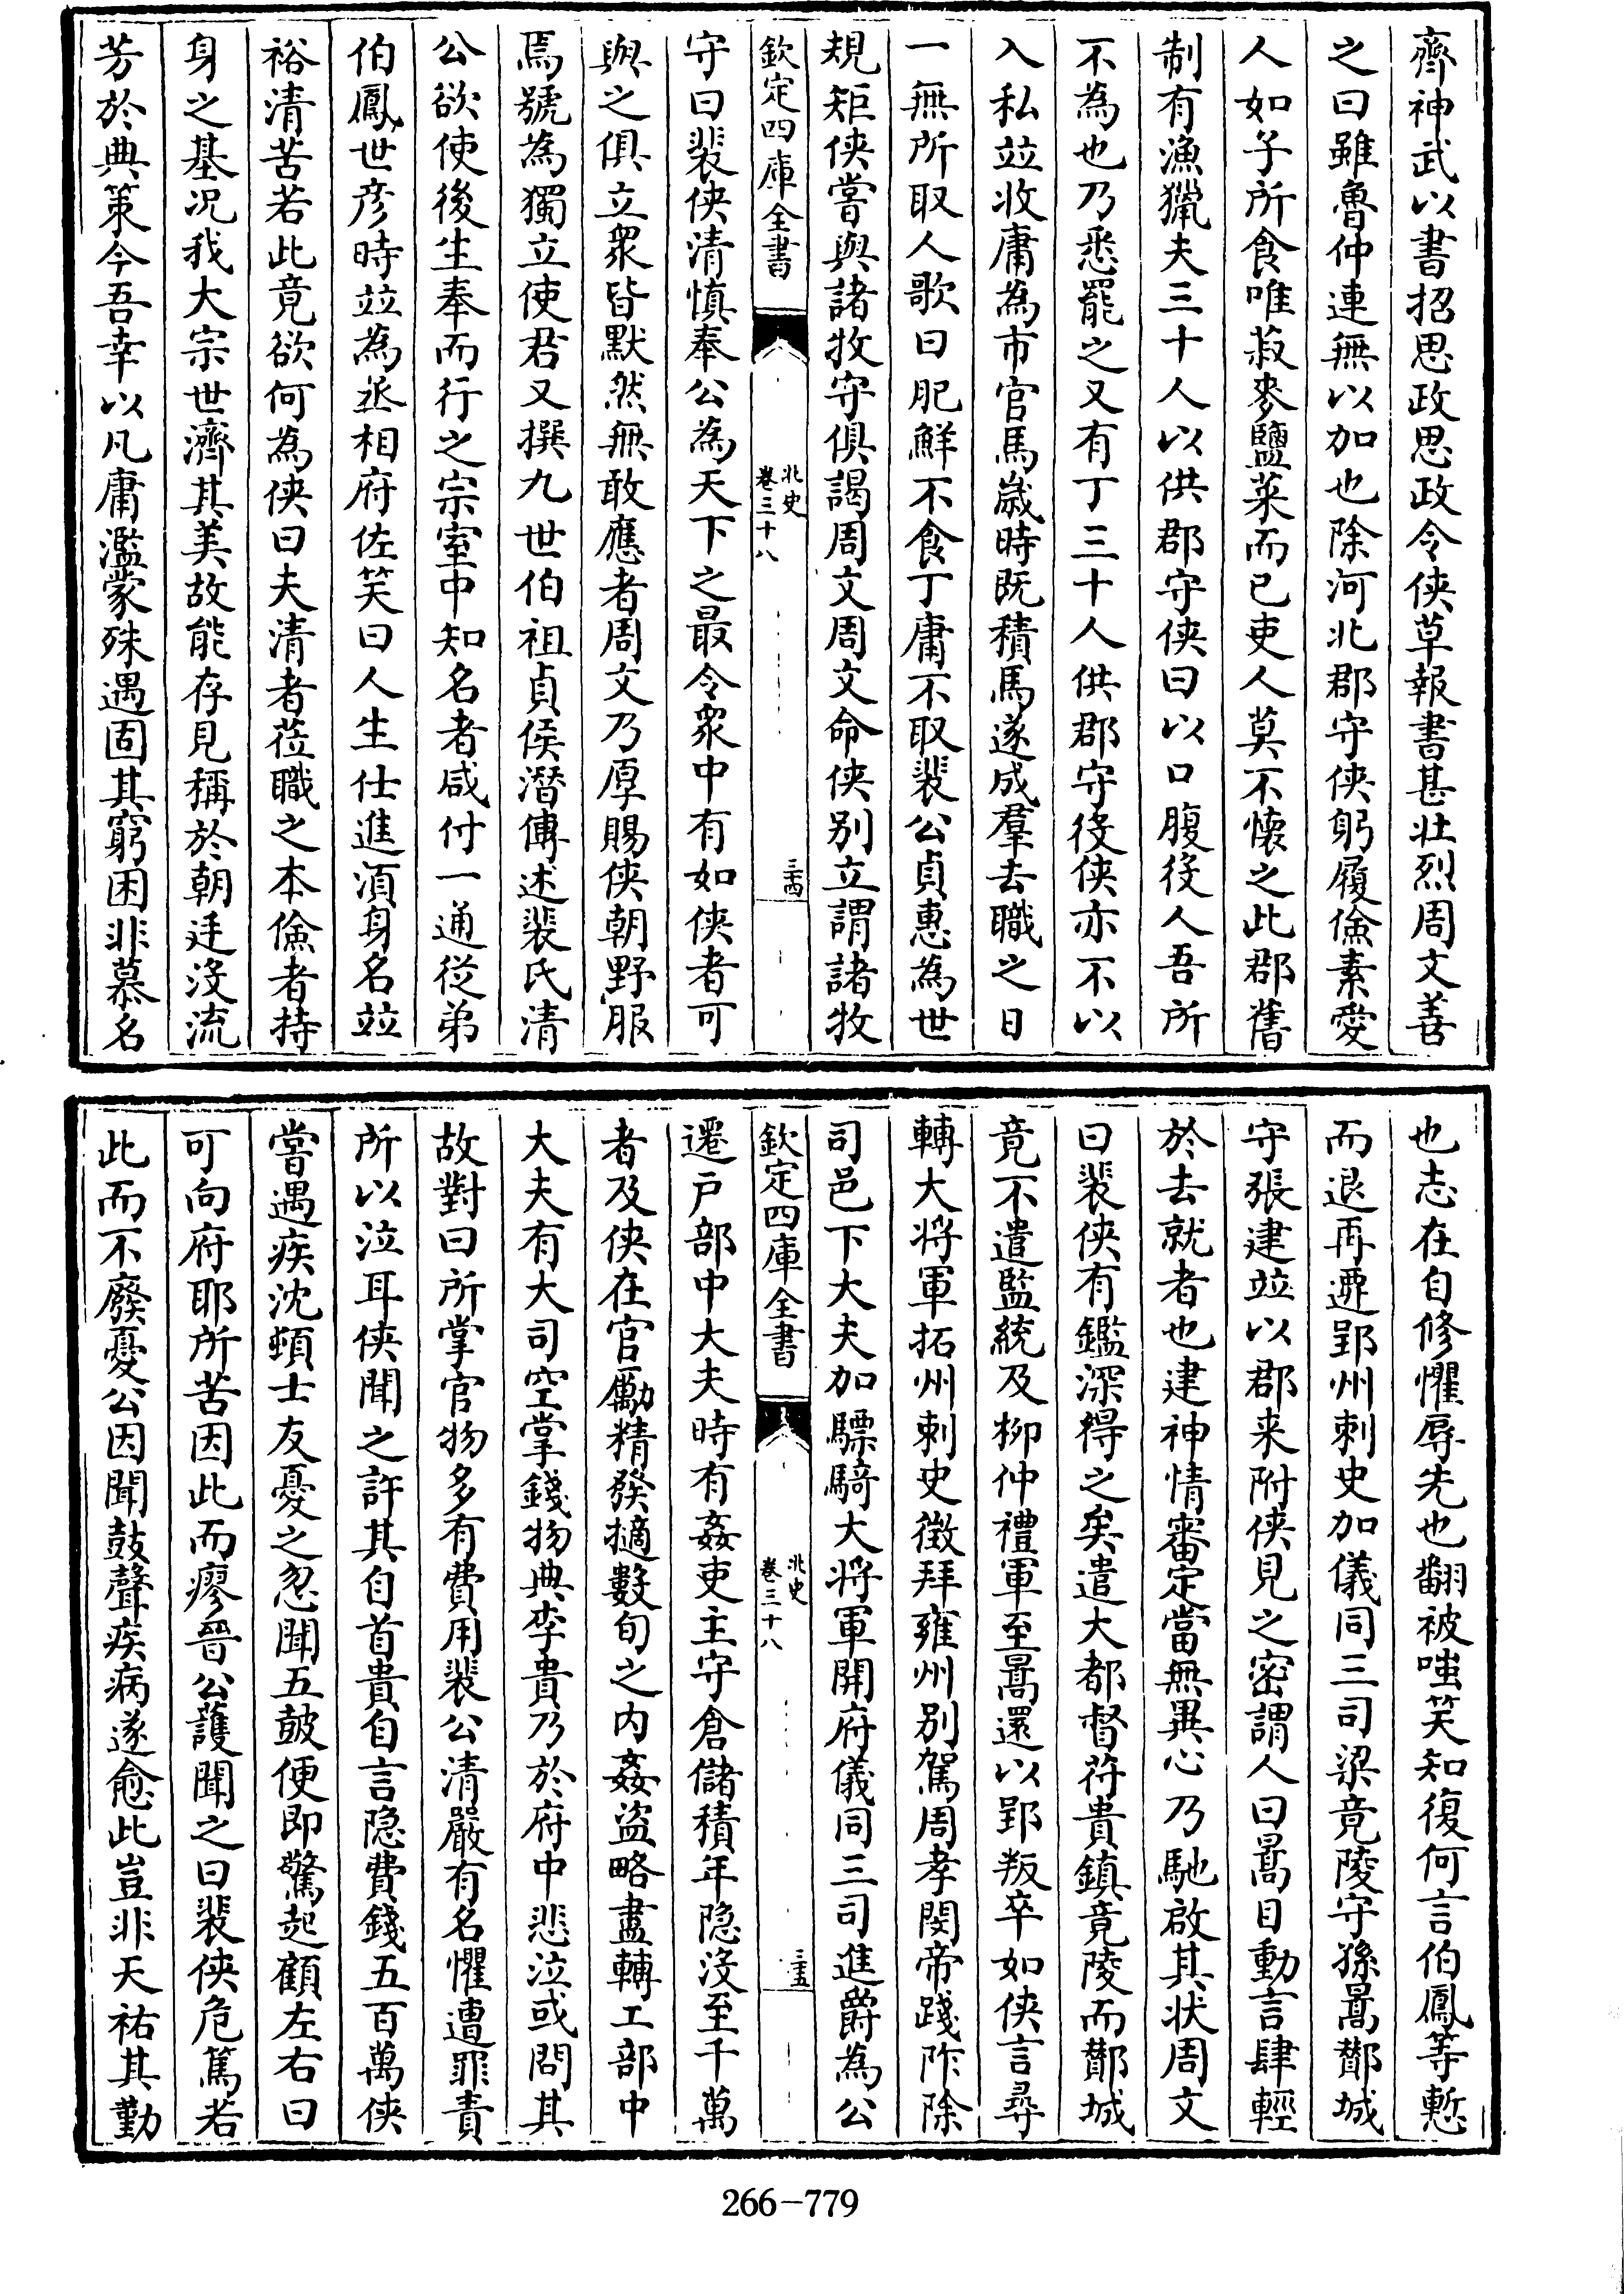 齊神武以書招思政思政令俠草報書甚壯烈周文善
之曰雖魯仲連無以加也除河北郡守俠躬履儉素愛
人如子所食唯菽麥鹽菜而已吏人莫不懷之此郡舊
制有漁獵夫三十人以供郡守俠曰以口腹役人吾所
不為也乃悉罷之又有丁三十人供郡守役俠亦不以
入私並收庸為市官馬歲時既積馬遂成羣去職之日
一無所取人歌曰肥鮮不食丁庸不取裴公貞惠為世
規矩俠嘗與諸牧守俱謁周文周文命俠别立謂諸牧
欽定四庫全書 北史卷三十八 三十四
守曰裴俠清慎奉公為天下之最令衆中有如俠者可
與之俱立衆皆默然無敢應者周文乃厚賜俠朝野服
焉號為獨立使君又撰九世伯祖貞侯潛傳述裴氏清
公欲使後生奉而行之宗室中知名者咸付一通從弟
伯鳳世彥時並為丞相府佐笑曰人生仕進須身名並
裕清苦若此竟欲何為俠曰夫清者莅職之本儉者持
身之基况我大宗世濟其美故能存見稱於朝廷沒流
芳於典策今吾幸以凡庸濫蒙殊遇固其窮困非慕名
也志在自修懼辱先也翻被嗤笑知復何言伯鳳等慙
而退再遷郢州刺史加儀同三司梁竟陵守孫暠酇城
守張建並以郡来附俠見之密謂人曰暠目動言肆輕
於去就者也建神情審定當無異心乃馳啟其状周文
曰裴俠有鑑深得之矣遣大都督苻貴鎮竟陵而酇城
竟不遣監統及柳仲禮軍至暠還以郢叛卒如俠言尋
轉大將軍拓州刺史徵拜雍州别駕周孝閔帝踐阼除
司邑下大夫加驃騎大將軍開府儀同三司進爵為公
欽定四庫全書 北史卷三十八 三十五
遷戶部中大夫時有姦吏主守倉儲積年隐沒至千萬
者及俠在官勵精發擿數旬之内姦盗略盡轉工部中
大夫有大司空掌錢物典李貴乃於府中悲泣或問其
故對曰所掌官物多有費用裴公清嚴有名懼遭罪責
所以泣耳俠聞之許其自首貴自言隐費錢五百萬俠
嘗遇疾沈頓士友憂之忽聞五鼓便即驚起顧左右曰
可向府耶所苦因此而瘳晉公護聞之曰裴俠危篤若
此而不廢憂公因聞鼓聲疾病遂愈此豈非天祐其勤
266-779